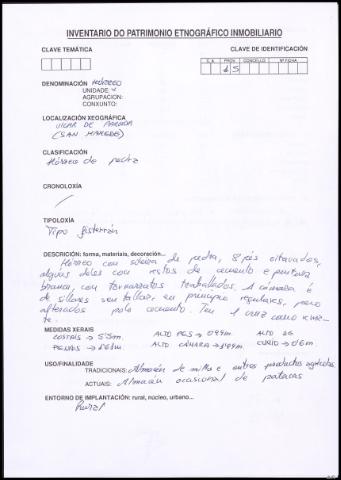 INVENTARIO DO PATRIMONIO ETNOGRÁFICO INMOBILIARIO
CLAVE TEMÁTICA
CLAVE DE IDENTIFICACIÓN
C.A. PROV. CONCELLO Nº FICHA
15
DENOMINACIÓN Hórreo
UNIDADE:
AGRUPACION:
CONXUNTO:
LOCALIZACIÓN XEOGRÁFICA
VILAR DE PARGOA
(SAN MAMEDE)
CLASIFICACIÓN
Hórreo de pedra
CRONOLOXÍA
TIPOLOXÍA
Tipo fisterrán
DESCRICIÓN: forma, materiais, decoración...
Hórreo con soleira de pedra, 8 pés oitavados,
algúns deles con restos de cemento e pintura
branca, con tornarratos traballados. A cámara é
de sillares sen tallar, en principio regulares, pero
alterados polo cemento. Ten 1 cruz como rema-
te.
MEDIDAS XERAIS
COSTAIS → 5'5m. ALTO PES → 0'94m. ALTO
ALTO CÁMARA → CUBTO → 0'6m
USO/FINALIDADE
TRADICIONAL: Almacén de millo e outros productos agrícolas
ACTUAIS: Almacén ocasional de patacas
ENTORNO DE IMPLANTACIÓN: rural, núcleo, urbano...
Rural